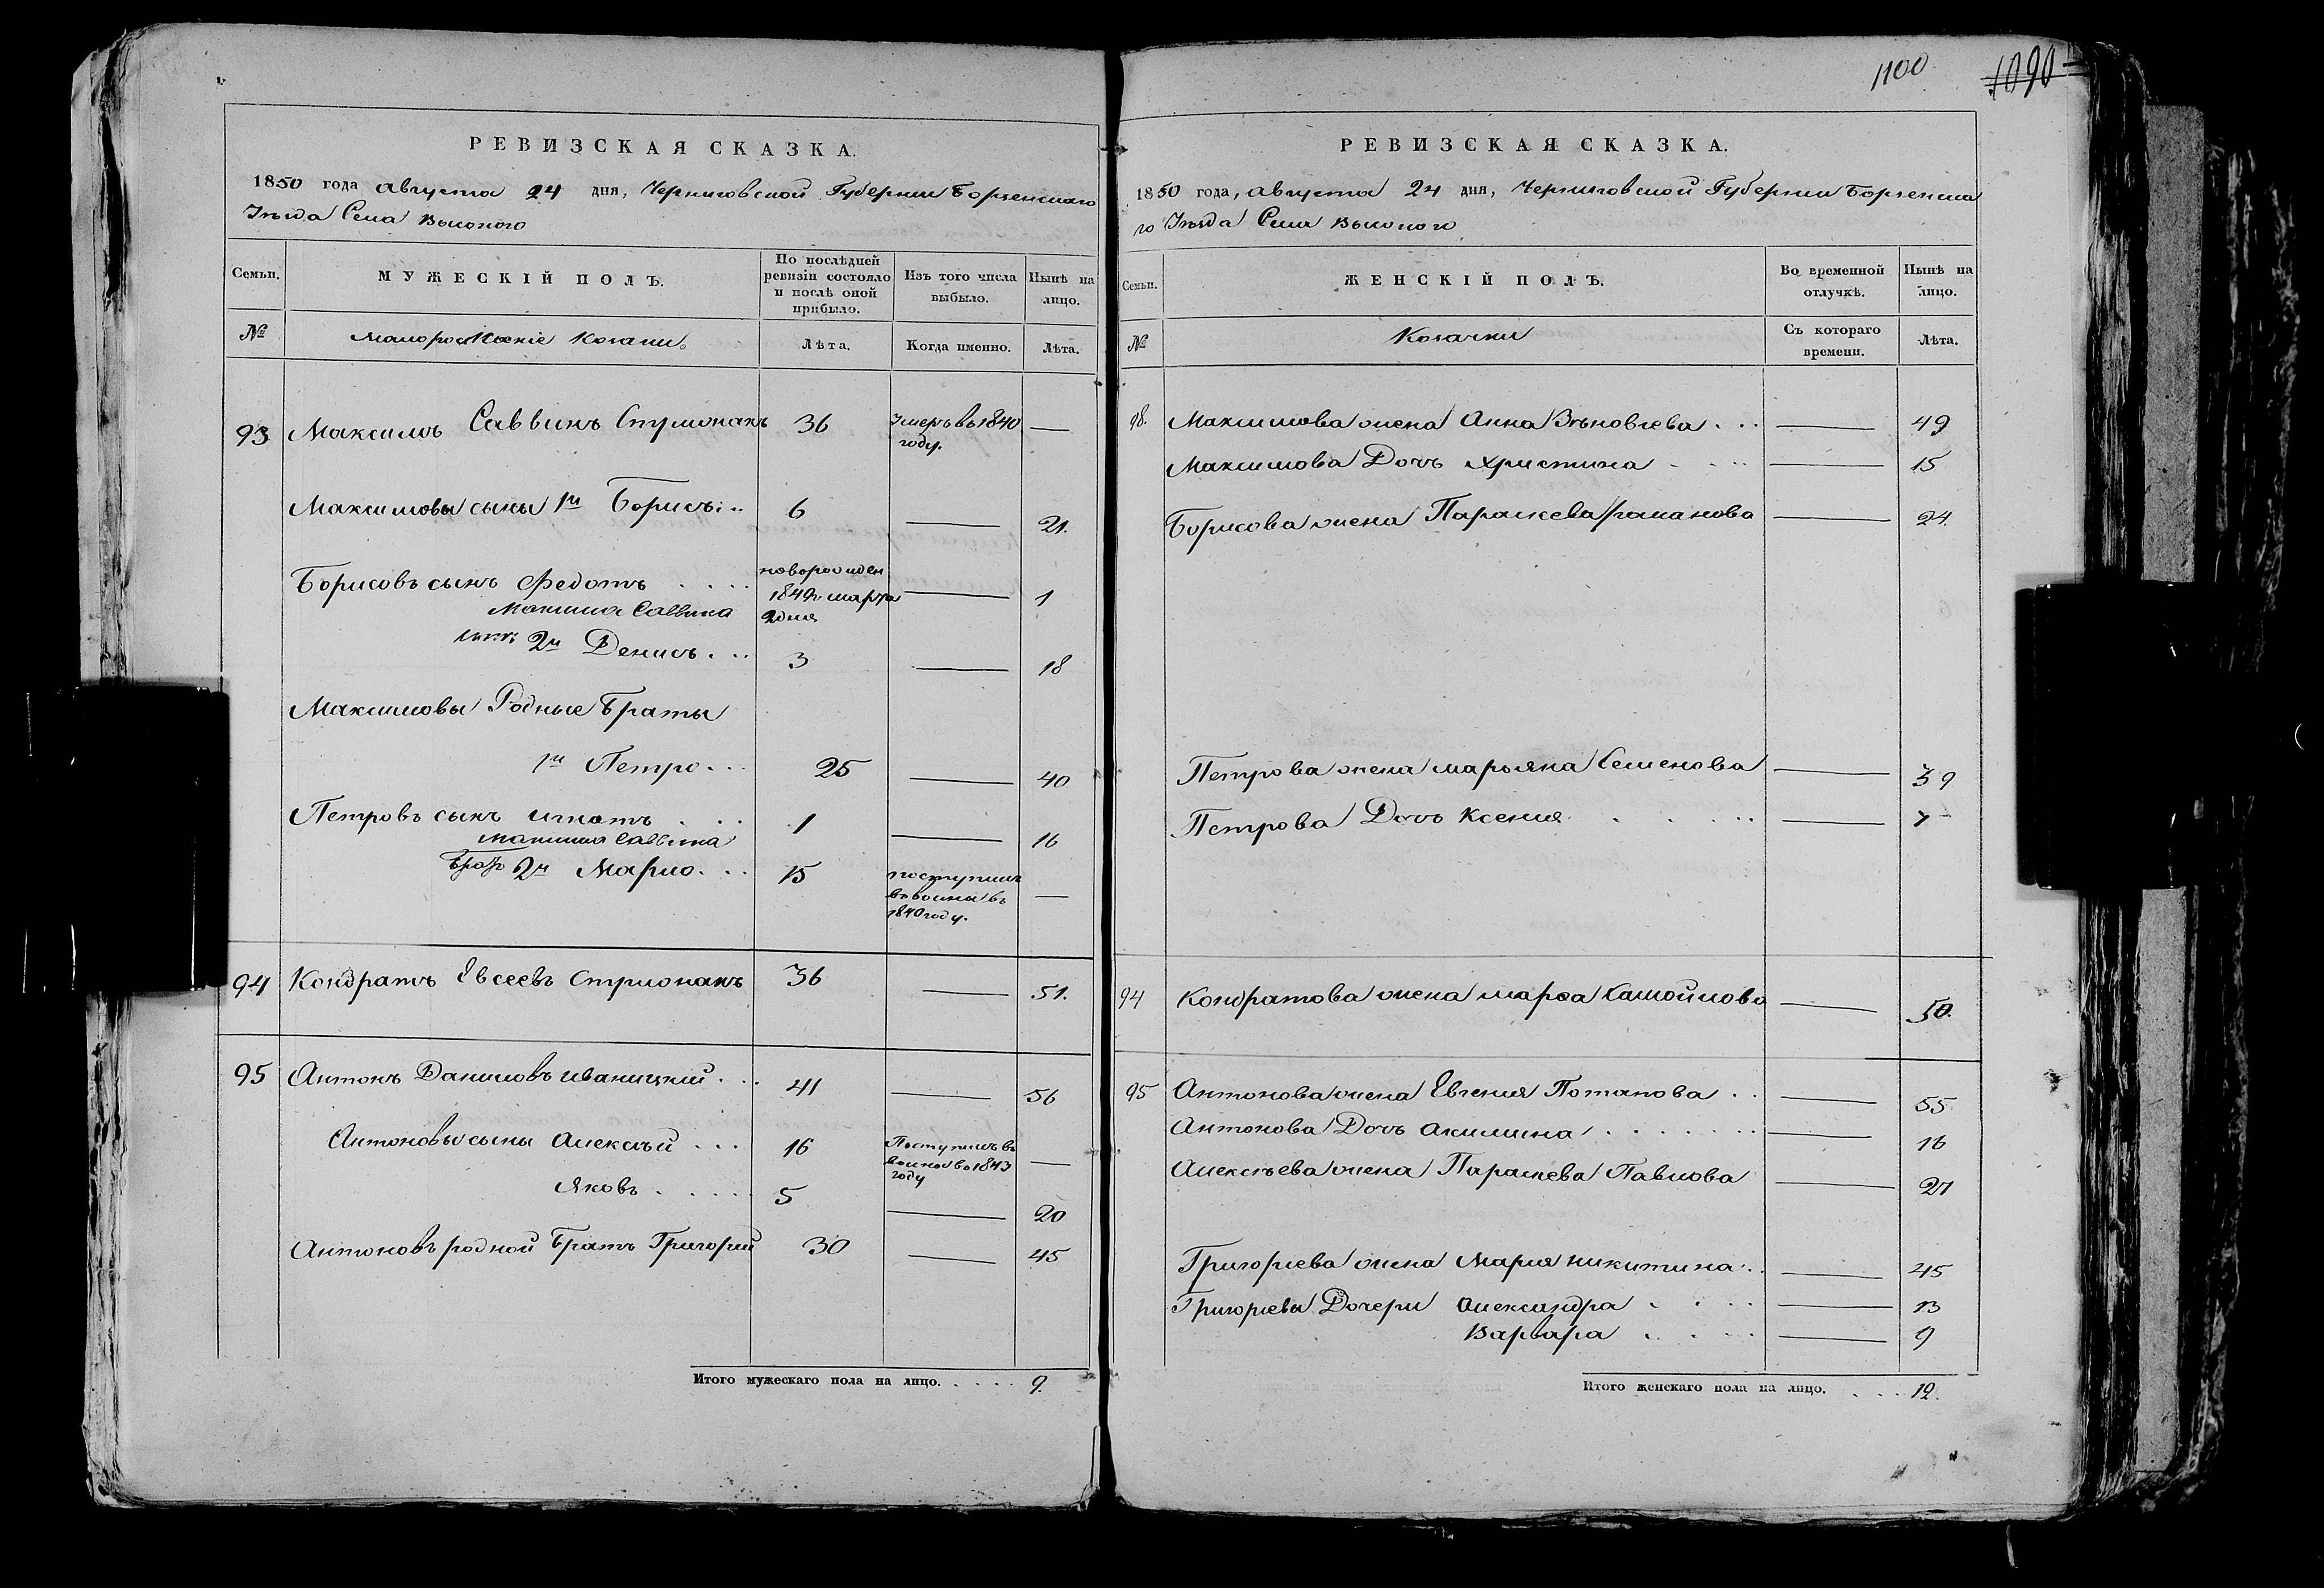 1100 1090
РЕВИЗСКАЯ СКАЗКА.
1850 года августа 24 дня, Черниговской Губернии Борзенского
Уезда Села Высокого
Семьи.
МУЖЕСКІЙ ПОЛЪ.
По послѣдней ревизіи состояло и послѣ оной прибыло.
Изъ того числа выбыло.
Нынѣ на лицо.
№
Малороссійскіе Козаки
Лѣта.
Когда именно.
Лѣта.
93 Максимъ Саввинъ 36 Умеръ въ 1840 году. —
Максимовы сыны 1й Борисъ 6 — 21.
Борисовъ сынъ Федотъ новорожден 1849 марта — 1
Максима Саввина
сынъ 2й Денисъ 3 — 18
Максимовы Родные Браты
1й Петро 25 — 40
Петровъ сынъ Игнатъ 1 — 16
Максима Саввина
братъ 2й Марко 15 поступилъ въ воины въ 1840 году. —
94 Кондратъ Евсеевъ 36 — 51.
95 Антонъ Даниловъ Иваницкий 41 — 56
Антоновы сыны Алексѣй 16 Поступилъ въ воины въ 1843 году —
Яковъ 5 — 20
Антоновъ родной Братъ Григорий 30 — 45
Итого мужескаго пола на лицо. 9.
РЕВИЗСКАЯ СКАЗКА.
1850 года, августа 24 дня, Черниговской Губернии Борзенска
го Уезда Села Высокого
Семьи.
ЖЕНСКІЙ ПОЛЪ.
Во временной отлучкѣ.
Нынѣ на лицо.
№
Козачки
Съ котораго времени.
Лѣта.
98. Максимова жена Анна — 49
Максимова Дочь Христина — 15
Борисова жена Параскева — 24.
Петрова жена Марьяна Семенова — 39
Петрова Дочь Ксения — 7
94 Кондратова жена Марфа Самойлова — 50.
95 Антонова жена Евгения Потапова — 55
Антонова Дочь Акилина — 16
Алексѣева жена Параскева Павлова — 27
Григорьева жена Мария Никитина — 45
Григорьевы Дочери Александра — 13
Варвара — 9
Итого женскаго пола на лицо. 12.